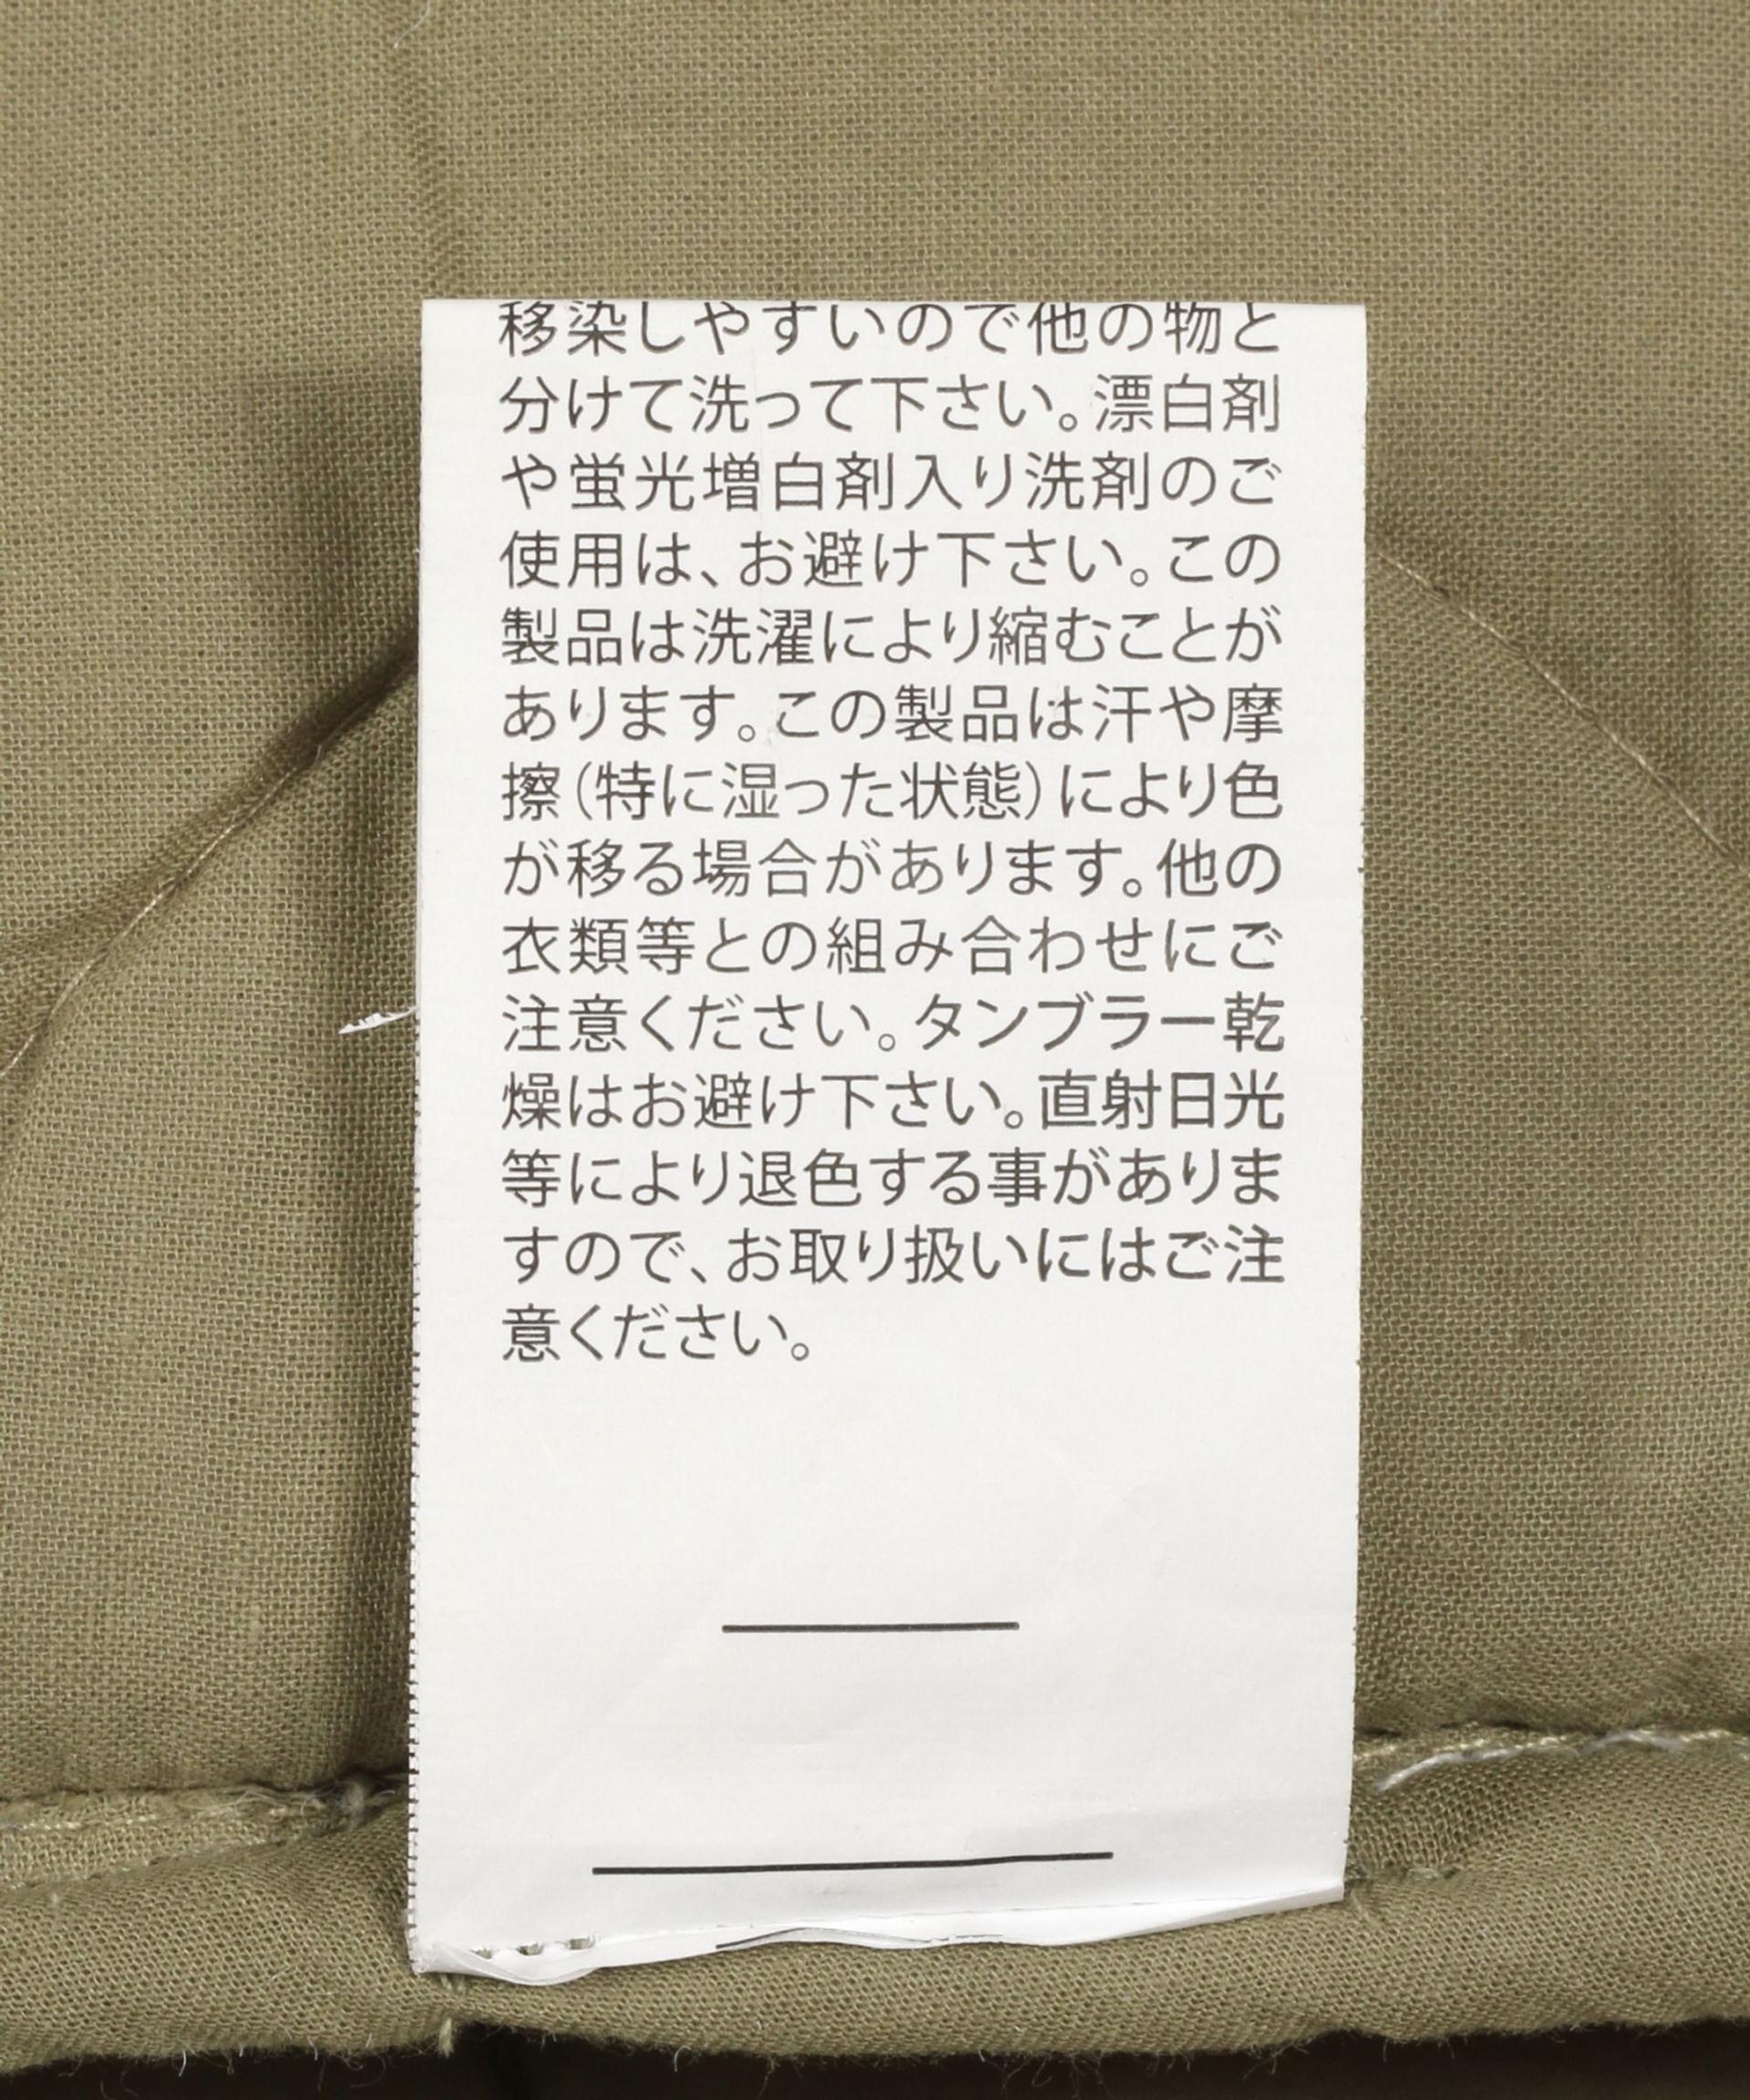 移染しやすいので他の物と
分けて洗って下さい。漂白剤
や蛍光増白剤入り洗剤のご
使用は、お避け下さい。この
製品は洗濯により縮むことが
あります。この製品は汗や摩
擦(特に湿った状態)により色
が移る場合があります。他の
衣類等との組み合わせにご
注意ください。タンブラー乾
燥はお避け下さい。直射日光
等により退色する事がありま
すので、お取り扱いにはご注
意ください。